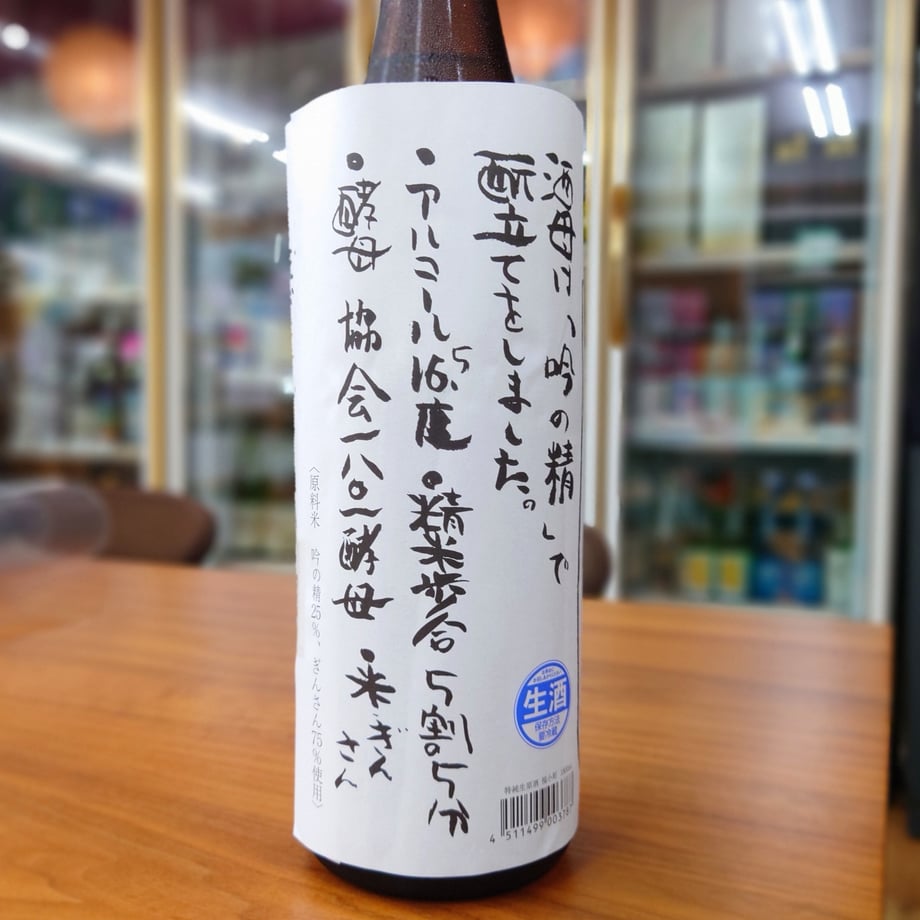 酒母は、「吟の精」で
酛立てをしました。
・アルコール16.5度 ・精米歩合 5割5分
・酵母 協会一八〇一酵母 ・米 ぎんさん
〈原料米 吟の精25%、ぎんさん75%使用〉
生酒
保存方法
要冷蔵
特純生原酒 福小町 1800ml
4 511499 003787